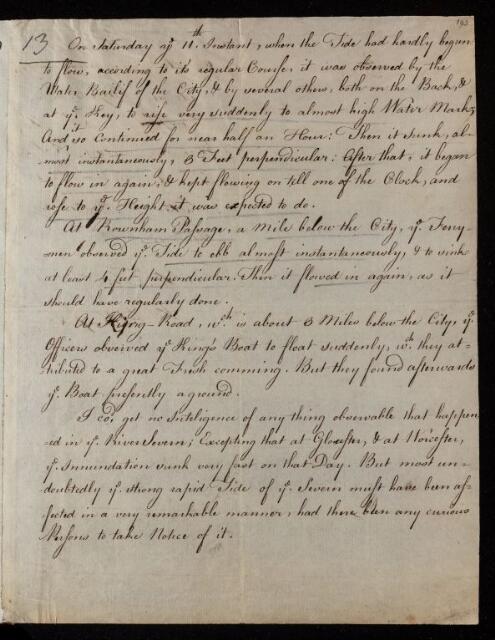 193
13 On Saturday yᵉ 11th Instant, when the Tide had hardly begun
to flow, according to its regular Course, it was observed by the
Water Bailif of the City, & by several others, both on the Back, &
at yᵉ Key, to rise very suddenly to almost high Water Mark;
And so it Continued for near half an Hour: Then it sunk, al-
most instantaneously, 3 Feet perpendicular: After that, it began
to flow in again, & kept flowing on till one of the Clock, and
rose to yᵉ Height it was expected to do.
At Rownham Passage, a Mile below the City, yᵉ Ferry-
men observed yᵉ Tide to ebb almost instantaneously, & to sink
at least 4 feet perpendicular. Then it flowed in again, as it
should have regularly done.
At Hung-Road, wch. is about 3 Miles below the City, yᵉ
Officers observed yᵉ King's Boat to float suddenly, wch. they at-
tributed to a great Fresh comming. But they found afterwards
yᵉ Boat presently a ground.
I cod. get no Inteligence of any thing observable that happen
-ed in yᵉ River Severn; Excepting that at Glocester, & at Worcester,
yᵉ Innundation sunk very fast on that Day. But most un-
doubtedly yᵉ strong rapid Tide of yᵉ Severn must have been af-
fected in a very remarkable manner, had there been any curious
Persons to take Notice of it.